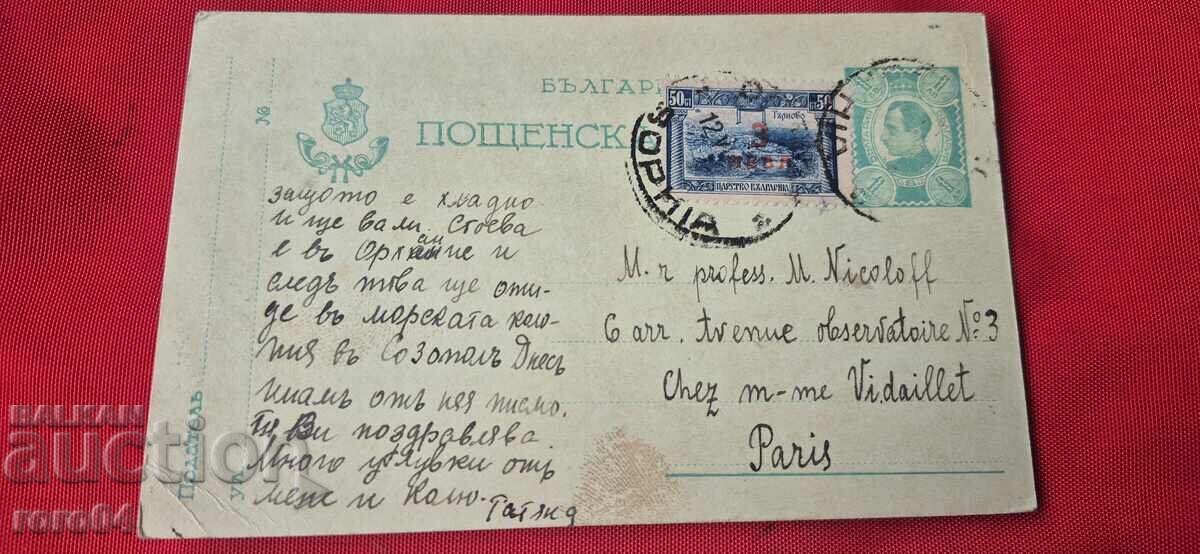 №
БЪЛГАРИ
ПОЩЕНСКА
50 СТ
Търново
3
ЛЕВА
ЦАРСТВО БЪЛГАРИЯ
12.V
СОФИЯ
1
1
защото е хладно
и ще вали. Стоева
е въ Орхание и
следъ това ще оти-
де въ морската коло-
ния въ Созополъ Днесъ
имамъ отъ нея писмо.
Тя Ви поздравлява.
Много целувки отъ
мене и Колю. Татяна
M. r profess. M. Nicoloff
6 arr. Avenue observatoire № 3
Chez m-me Vidaillet
Paris
Подателъ
Ул.
BALKAN
auction
roro64